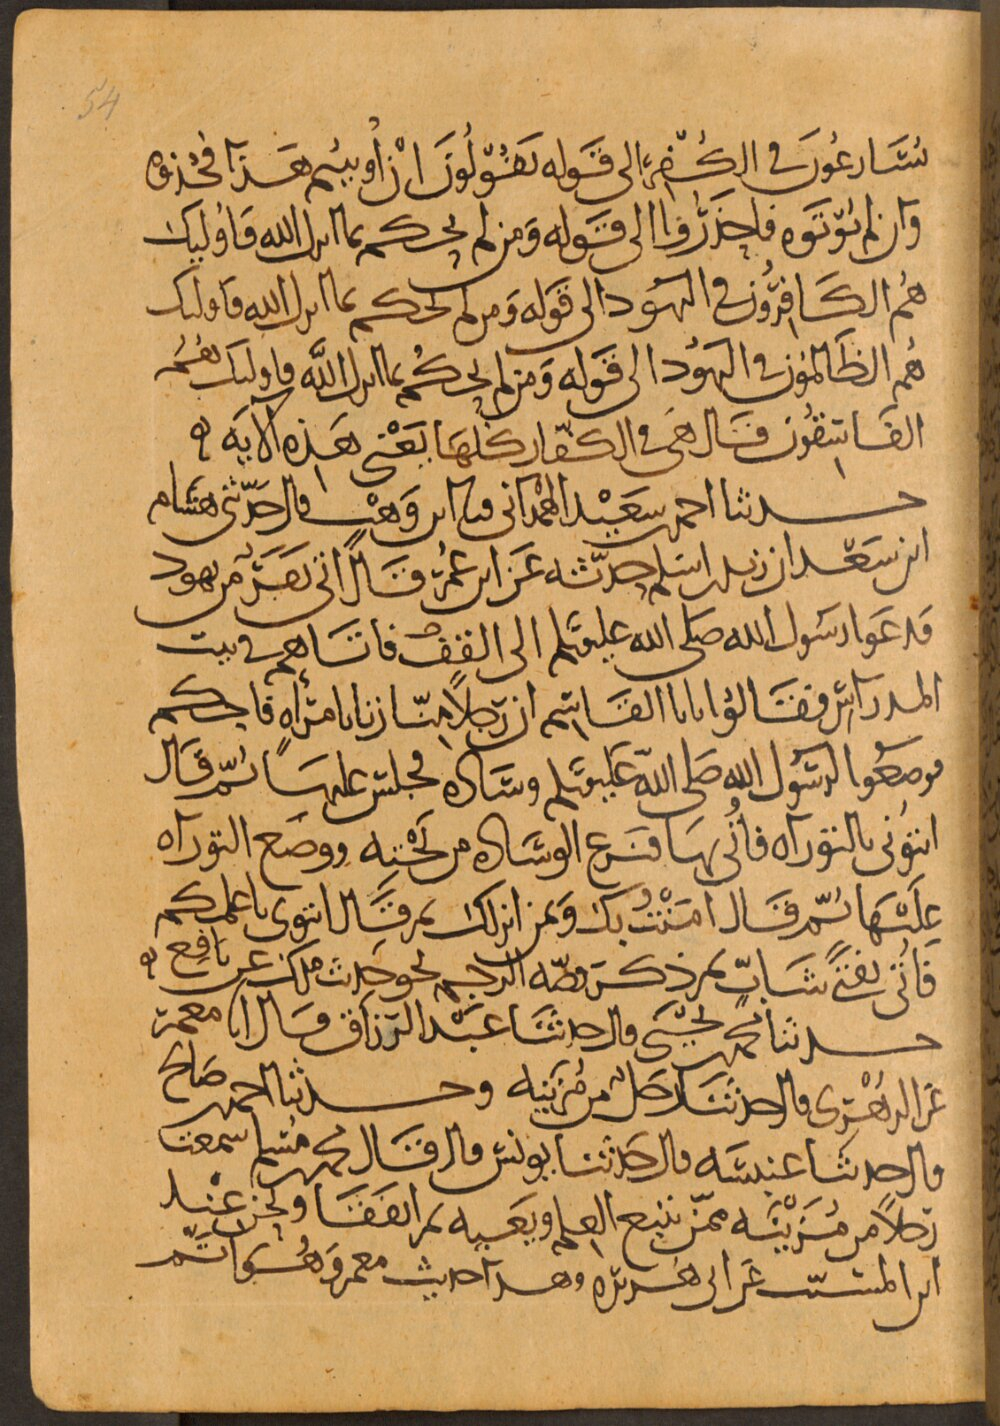 54
يُسَارعُونَ في الكُفْرِ الى قَوله يَقُوْلُونَ انْ أُوتيتُم هَذَا فخُذوه
وَان لم تُؤتَوه فاحذَرُوا الى قَوله وَمن لم يحكم بما انزل الله فَاُوليك
هُم الكَافِرُون في اليهُود الى قَوله وَمن لم يحكم بما انزل الله فاوليك
هُم الظَالمُون في اليهُود الى قَوله وَمن لم يحكُم بما انزل الله فاوليك هُمُ
الفَاسِقُون قَال هيَ في الكفّار كلهَا يَعْني هَذه الآيَه ه
حدثنا احمد بن سَعيْد الهمْدانى نا ابن وَهْب قال حَدّثنى هشَام
ابن سَعْد ان زيد بن اسْلم حدّثه عَن ابن عُمَر قَال أتى نفَر من يهود
فدعَوا رسَول الله صَلى الله عليه وسَلم الى القفّ فاتاهم في بيت
المدرَاس فقَالوُا يابا القَاسِم ان رَجُلاً منّا زنا بامرَأه فاحكم
فوضعُوا لرسُول الله صَلى الله عَليه وسَلم وسَاده فجلس عليهَا ثم قَال
ائتوُني بالتورَاه فاُتي بهَا فنزع الوسَاده من تَحْته ووضَع التورَاه
عَليْهَا ثم قَال امَنْتُ بك وَبمن انزلك ثم قَال ائتوني باعلمكم
فاُتى بفتىً شَابّ ثم ذكر قصّه الرجم نحو حَديث مَلك عن نافِع ه
حدثنا محمد بن يحيَى قال حدثنَا عَبْد الرزَاق قال انا معمر
عَن الزهْرِى قال حدثنَا رَجُل من مُزَينه وحدثنا احمد بن صَالح
قال حدثنَا عنبسَه قال حَدثنا يونس قال قَال محمد بن مُسْلم سمعت
رَجُلاً من مُزَيْنَه ممّن يتبع العِلم ويَعيه ثم اتفَقَا ونحن عنْد
ابن المسَيّب عَن ابى هُرَيرَه وهذا حَديث معمر وَهُوَ اتَمّ